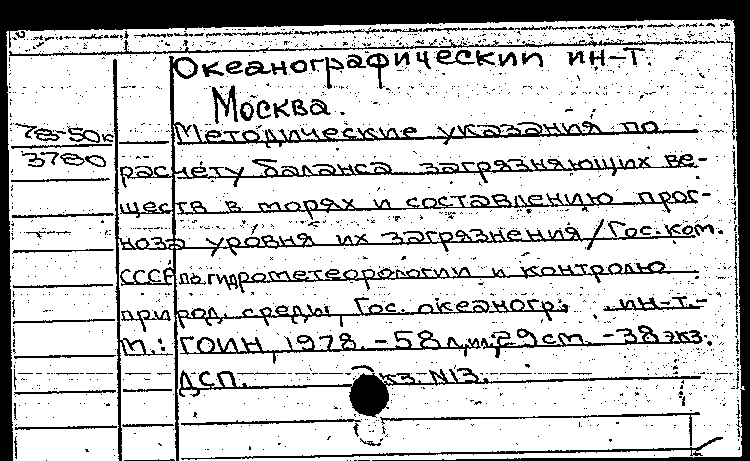 Океанографический ин-т.
Москва.
78-50к Методические указания по
3780 расчёту баланса загрязняющих ве-
ществ в морях и составлению прог-
ноза уровня их загрязнения/Гос.ком.
СССР по гидрометеорологии и контролю
природ. среды, Гос. океаногр. ин-т.-
М.: ГОИН, 1978. - 58 л,ил;29 см. - 38 экз.
ДСП. Экз. N13.